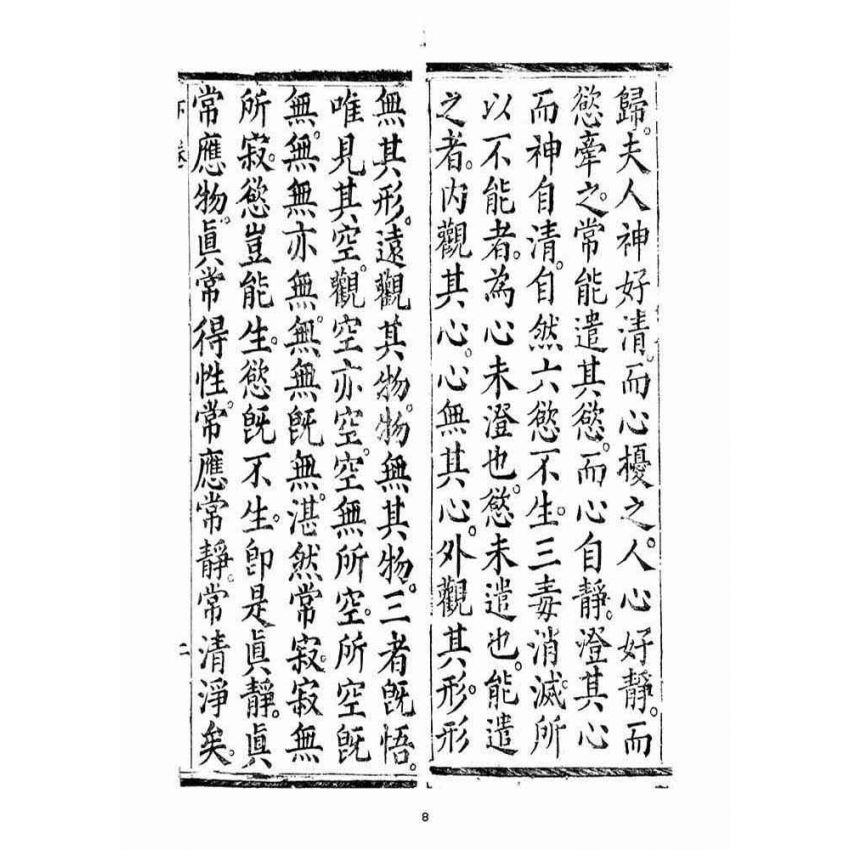 歸。夫人神好清。而心擾之。人心好靜。而
慾牽之。常能遣其慾。而心自靜。澄其心
而神自清。自然六慾不生。三毒消滅。所
以不能者。為心未澄也。慾未遣也。能遣
之者。内觀其心。心無其心。外觀其形。形
無其形。遠觀其物。物無其物。三者旣悟。
唯見其空。觀空亦空。空無所空。所空旣
無。無無亦無。無無旣無。湛然常寂。寂無
所寂。慾豈能生。慾旣不生。卽是眞靜。眞
常應物。眞常得性。常應常靜。常清淨矣。
二
8